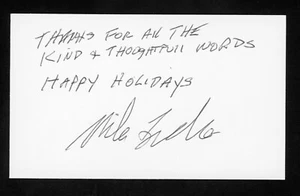 THANKS FOR ALL THE
KIND & THOUGHTFULL WORDS
HAPPY HOLIDAYS
Mike